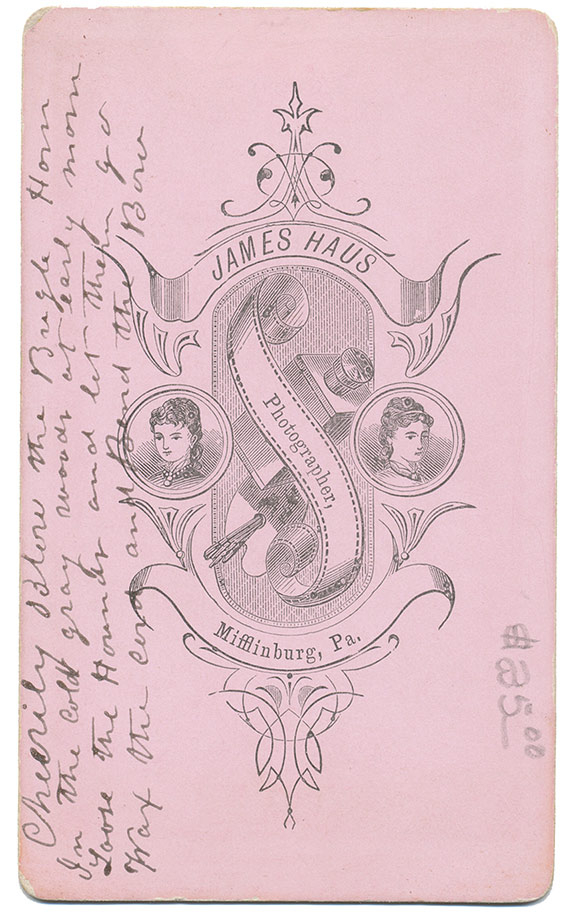 Cheerily Blow the Bugle Horn
In the Cold gray woods at early morn
Loose the Hounds and let them go
Wax the Cord and Bend the Bow
JAMES HAUS
Photographer,
Mifflinburg, Pa.
$25.00